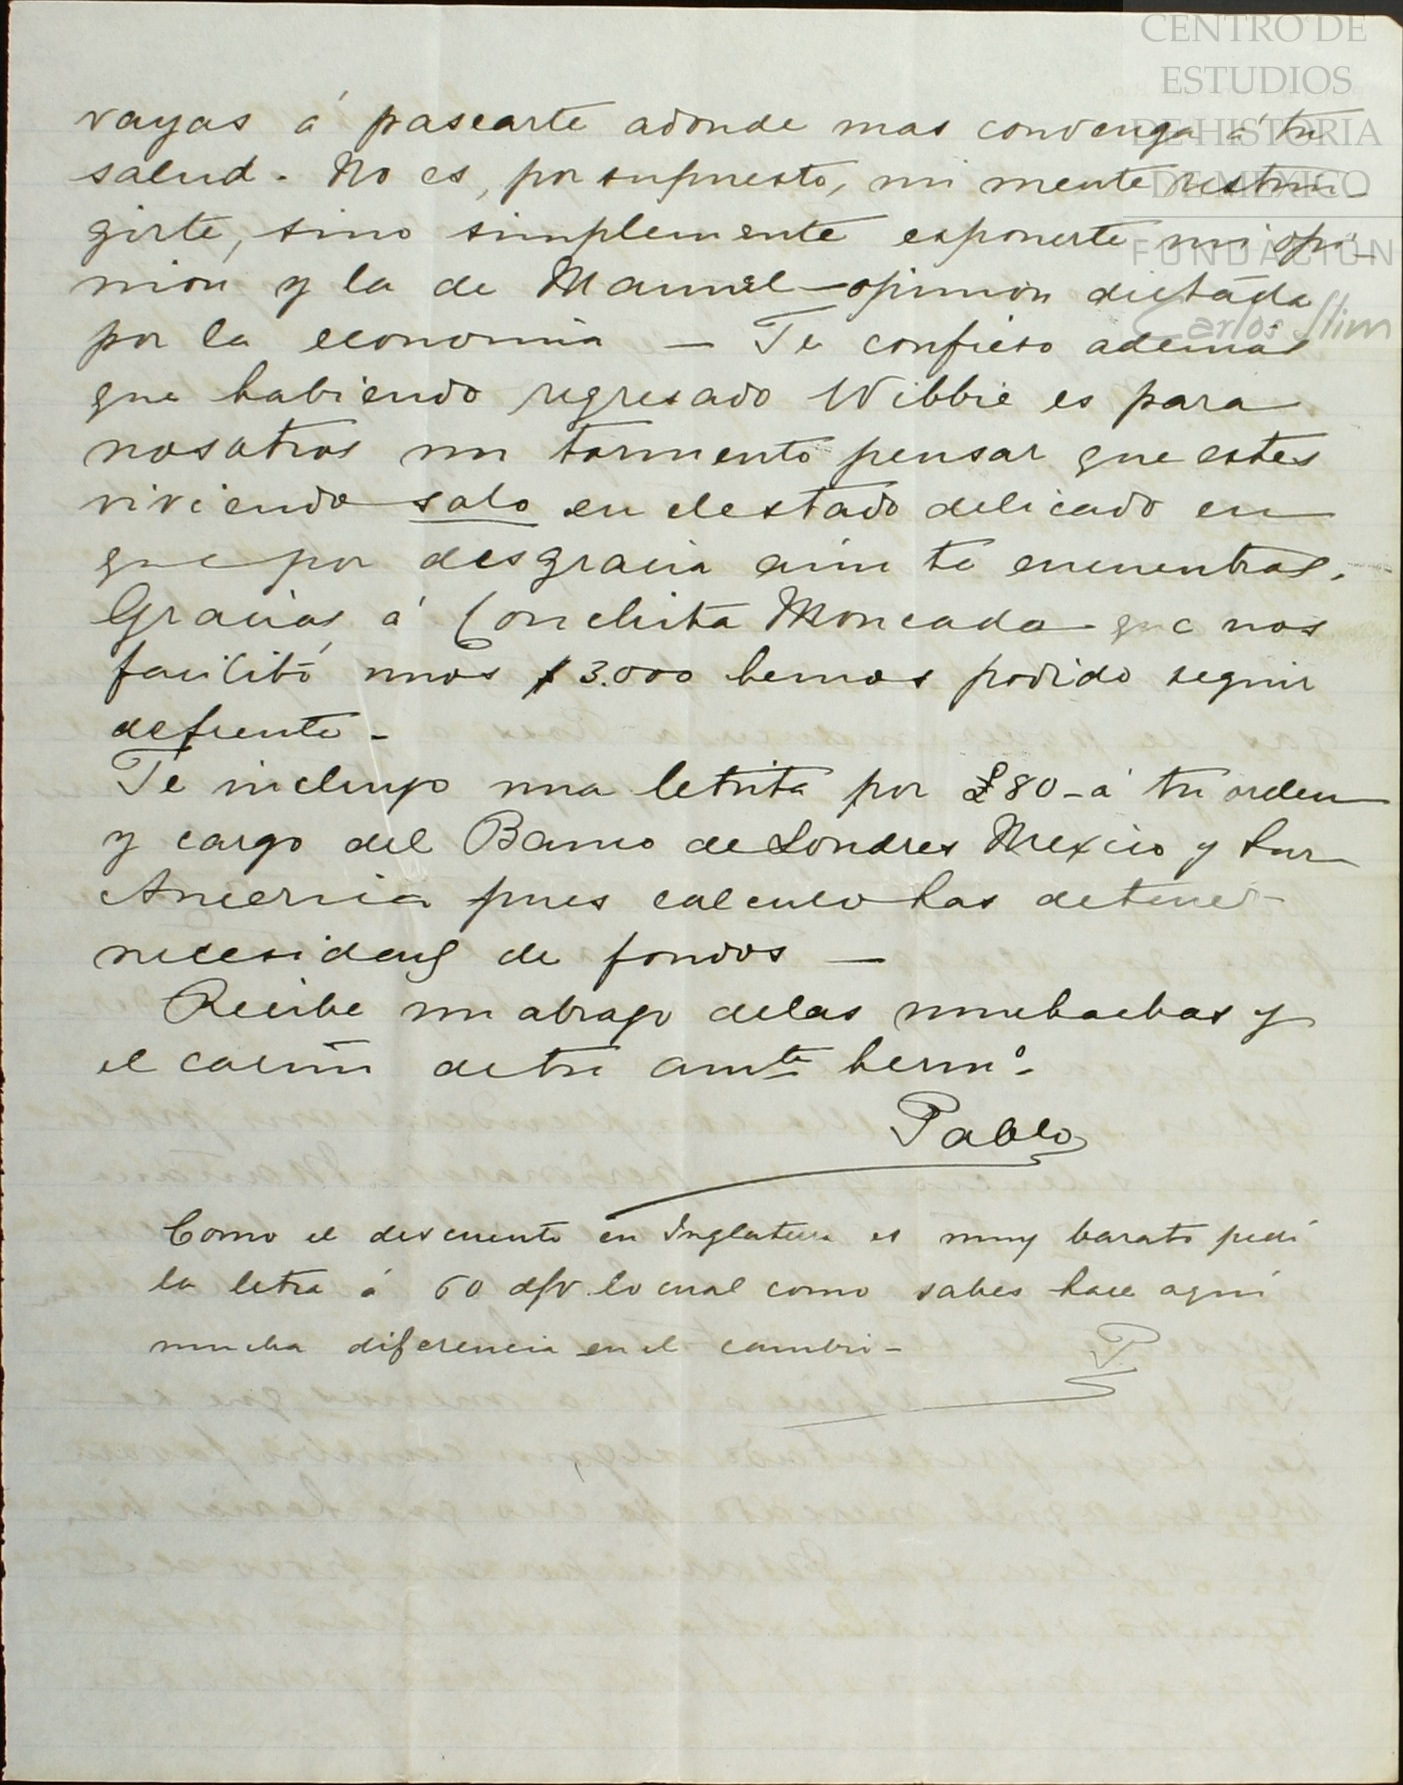 CENTRO DE
ESTUDIOS
DE HISTORIA
DE MEXICO
FUNDACION
Carlos Slim
vayas á pasearte adonde mas convenga á tu
salud. No es, por supuesto, mi mente restrin-
girte, sino simplemente esponerte mi opi-
nion y la de Manuel - opinión dictada
por la economia — Te confieso ademas
que habiendo regresado Wibbie es para
nosotros un tormento pensar que estes
viviendo solo en el estado delicado en
que por desgracia aún te encuentras.
Gracias á Conchita Moncada que nos
facilitó unos $3.000 hemos podido seguir
defrente -
Te incluyo una letrita por £80 - á tu orden
y cargo del Banco de Londres Mexico y Sur
America pues calculo has de tener
necesidad de fondos —
Recibe un abrazo delas muchachas y
el cariño de tu amte hermo.
Pablo
Como el descuento en Inglaterra es muy barato pedí
la letra á 60 d/v. lo cual como sabes hace aquí
mucha diferencia en el cambio -
P